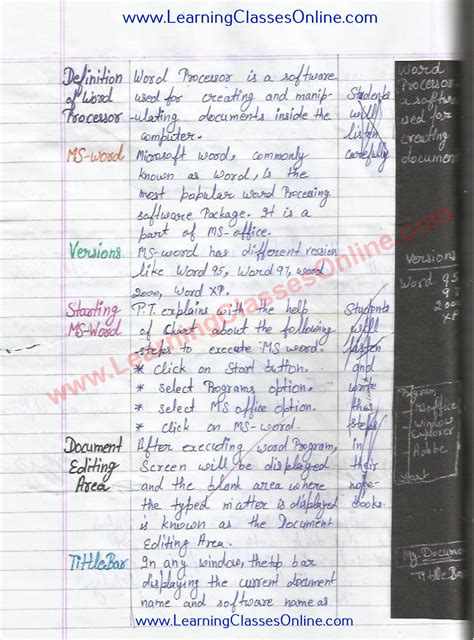 www.LearningClassesOnline.com
Definition Word Processor is a software
of Word used for creating and manip- Students
Processor -ulating documents inside the will
computer. listen
MS-word Microsoft word, commonly carefully
known as word, is the
most popular word Processing
software Package. It is a
part of MS-office.
Versions MS-word has different version
like Word 95, Word 97, word
2000, word XP.
Starting P.T. explains with the help Students
MS-Word of Chart about the following will
steps to execute MS word. listen
* Click on Start button. and
* select Programs option. write
* select MS office option. the
* click on MS-word. steps
Document After executing word Program, in
Editing Screen will be displayed their
Area and the blank area where note-
the typed matter is displayed books.
is known as the Document
Editing Area.
TittleBar In any window, the top bar
displaying the current document
name and software name as
Word
Processor
a softwa
used for
creating
documen
Versions
Word 95
97
2000
XP
Program
MSoffice
Window
Explorer
Adobe
Start
My Docume
TittleBar
www.LearningClassesOnline.com
www.LearningClassesOnline.com